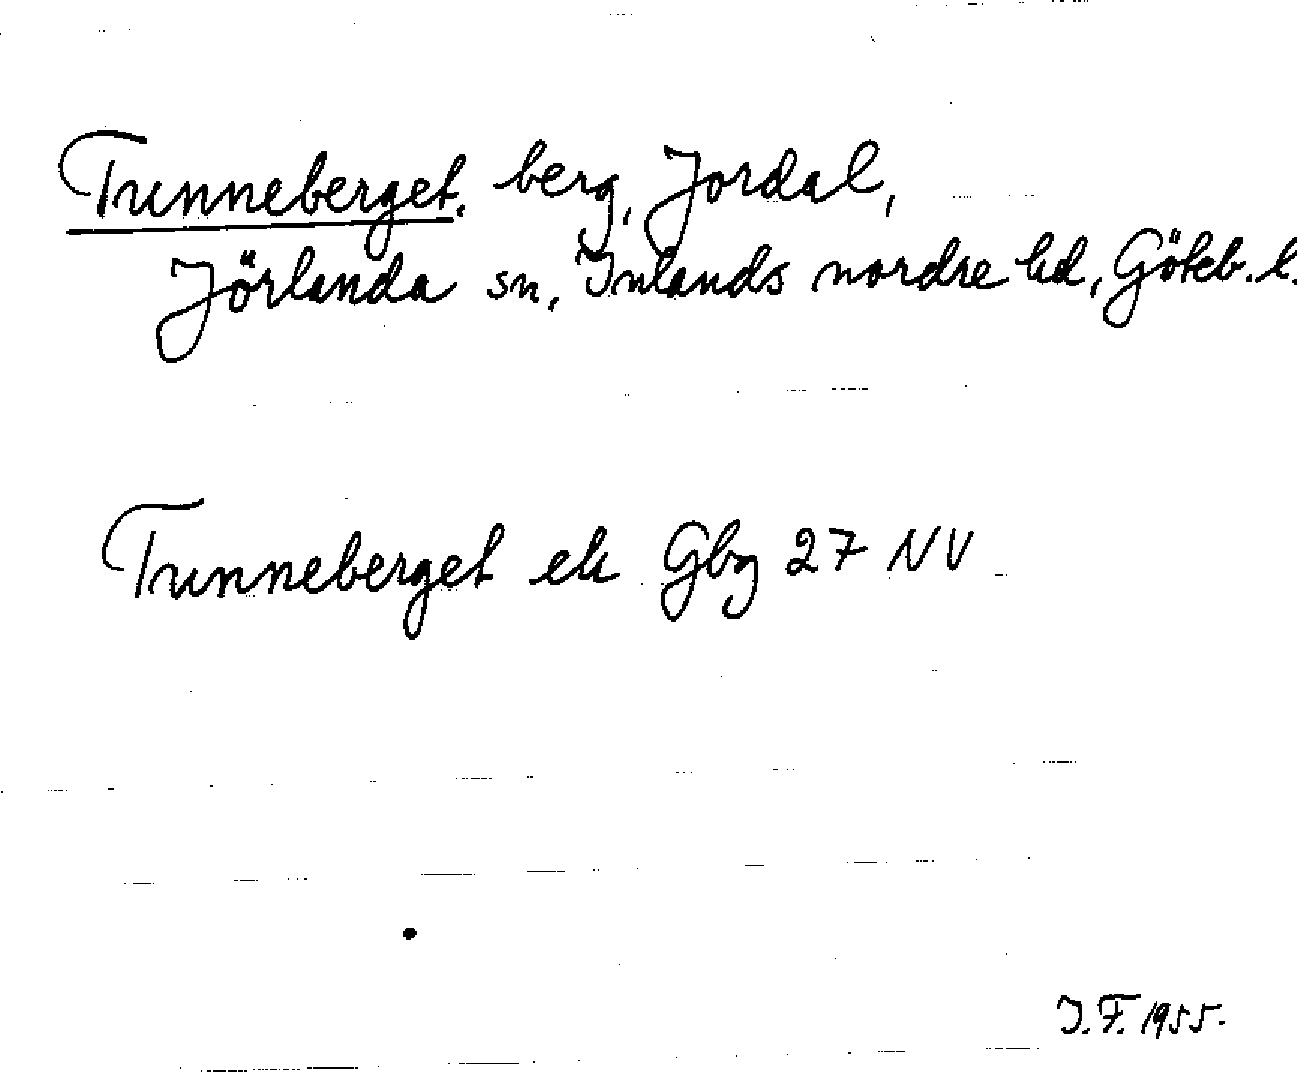 Tunneberget, berg, Jordal,
Jörlanda sn, Inlands nordre hd, Göteb. l.
Tunneberget ek Gbg 27 NV
J.F. 1955.